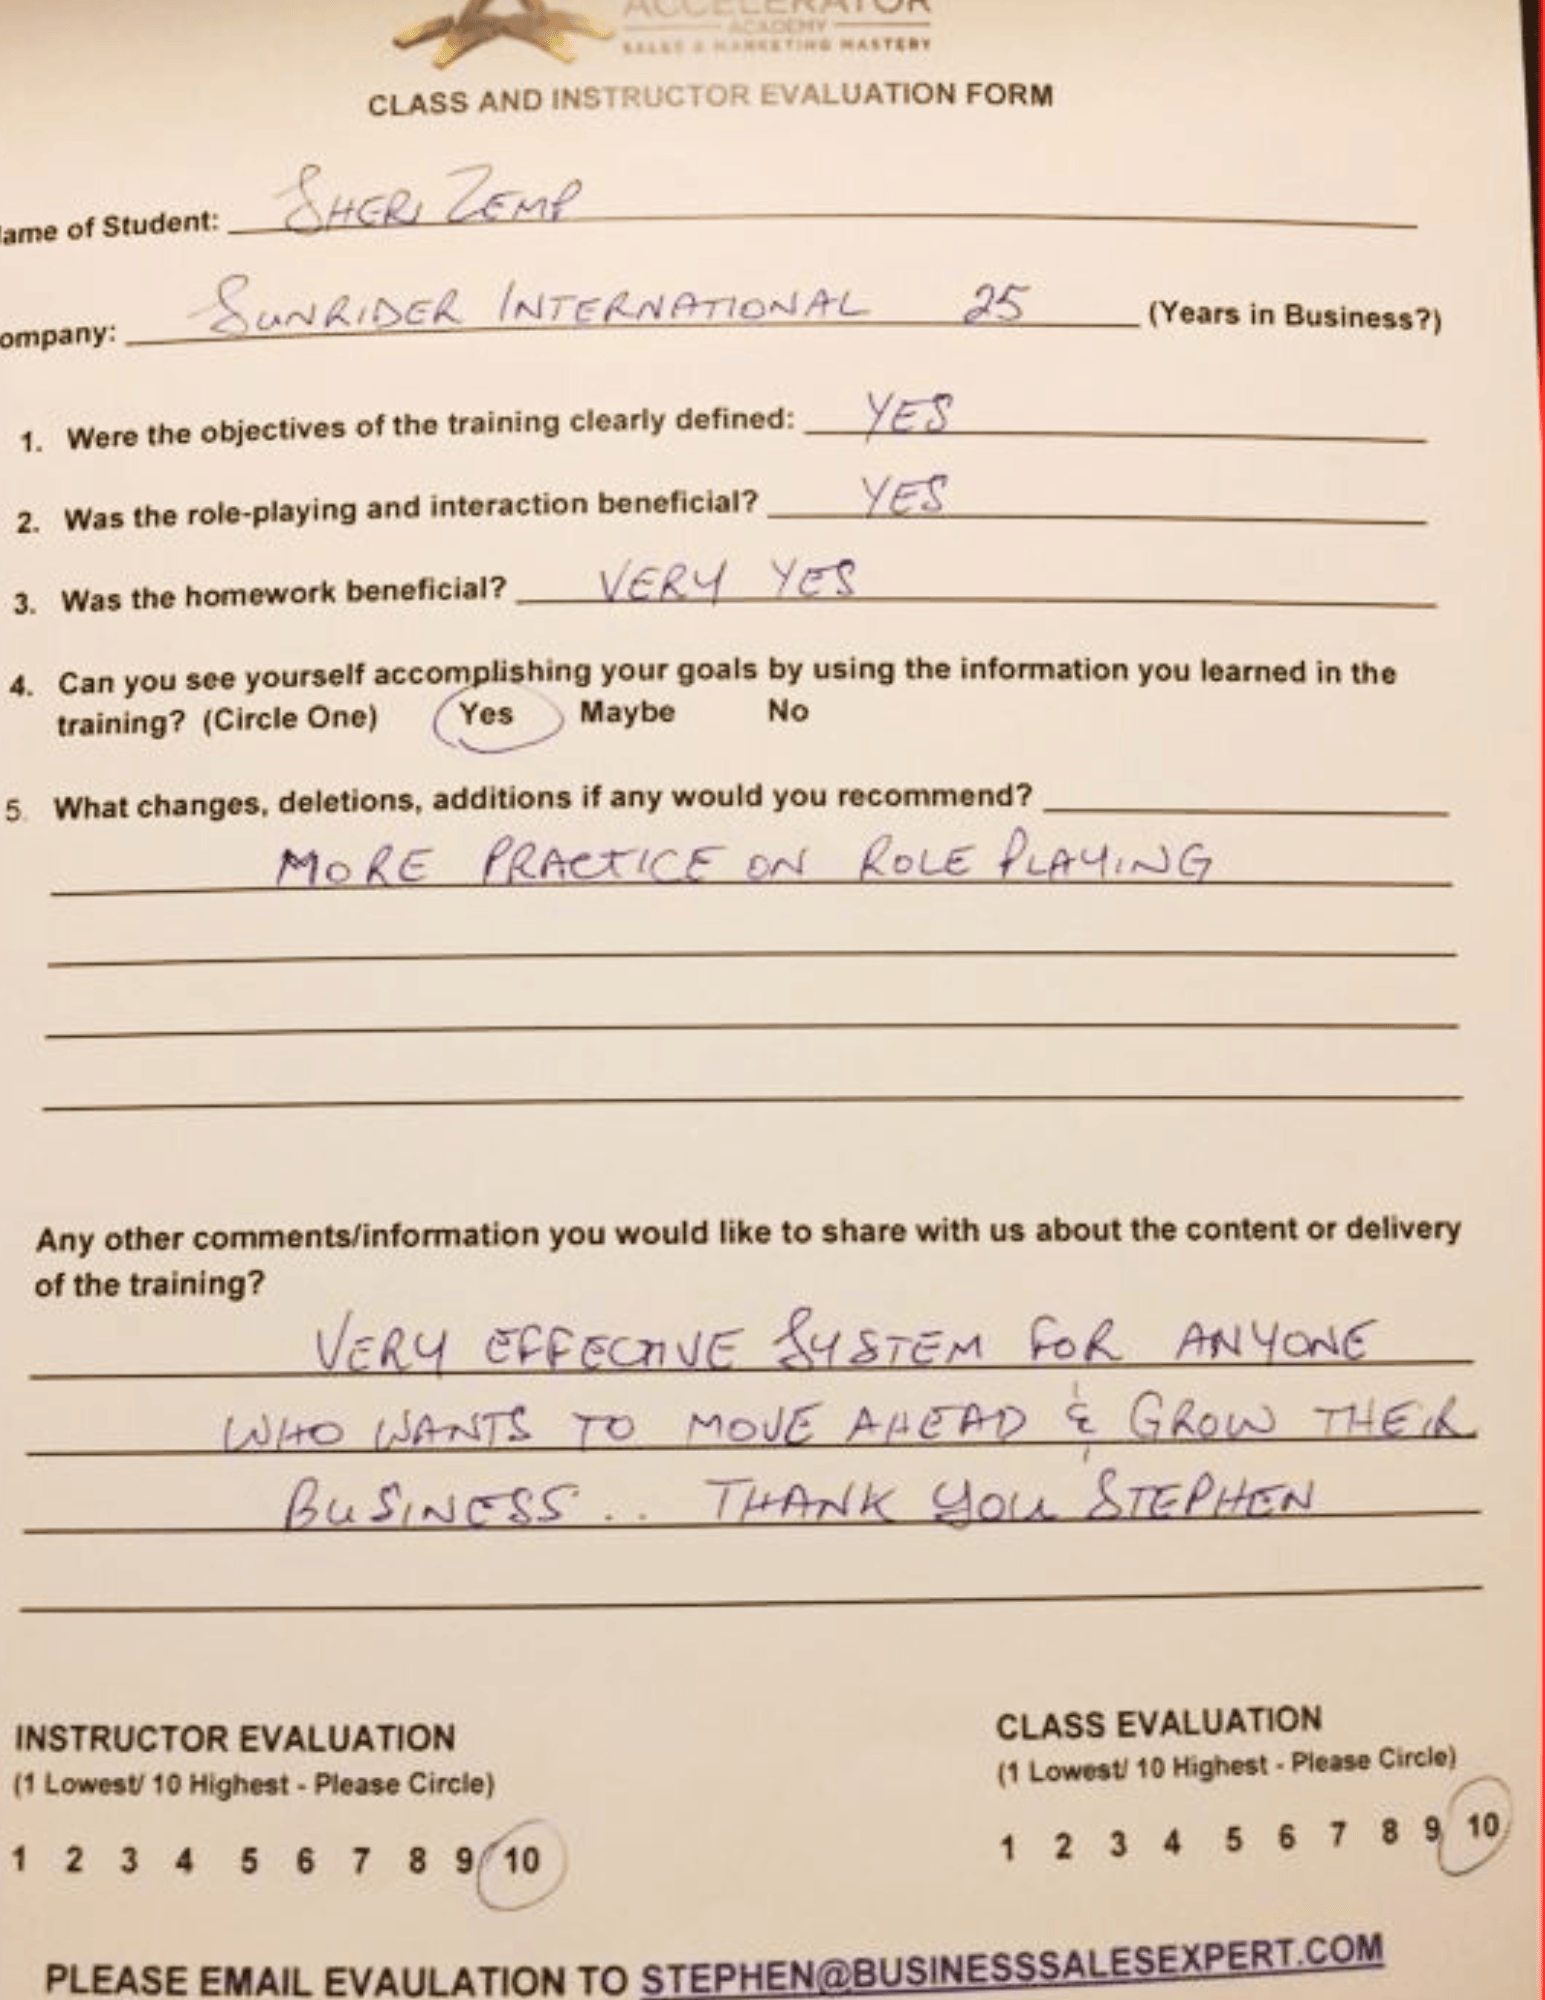 ACCELERATOR
ACADEMY
SALES & MARKETING MASTERY
CLASS AND INSTRUCTOR EVALUATION FORM
ame of Student: SHERI ZEMP
ompany: SUNRIDER INTERNATIONAL 25 (Years in Business?)
1. Were the objectives of the training clearly defined: YES
2. Was the role-playing and interaction beneficial? YES
3. Was the homework beneficial? VERY YES
4. Can you see yourself accomplishing your goals by using the information you learned in the
training? (Circle One) Yes Maybe No
5. What changes, deletions, additions if any would you recommend?
MORE PRACTICE ON ROLE PLAYING
Any other comments/information you would like to share with us about the content or delivery
of the training?
VERY EFFECTIVE SYSTEM FOR ANYONE
WHO WANTS TO MOVE AHEAD & GROW THEIR
BUSINESS... THANK YOU STEPHEN
INSTRUCTOR EVALUATION
(1 Lowest/ 10 Highest - Please Circle)
1 2 3 4 5 6 7 8 9 10
CLASS EVALUATION
(1 Lowest/ 10 Highest - Please Circle)
1 2 3 4 5 6 7 8 9 10
PLEASE EMAIL EVAULATION TO STEPHEN@BUSINESSSALESEXPERT.COM